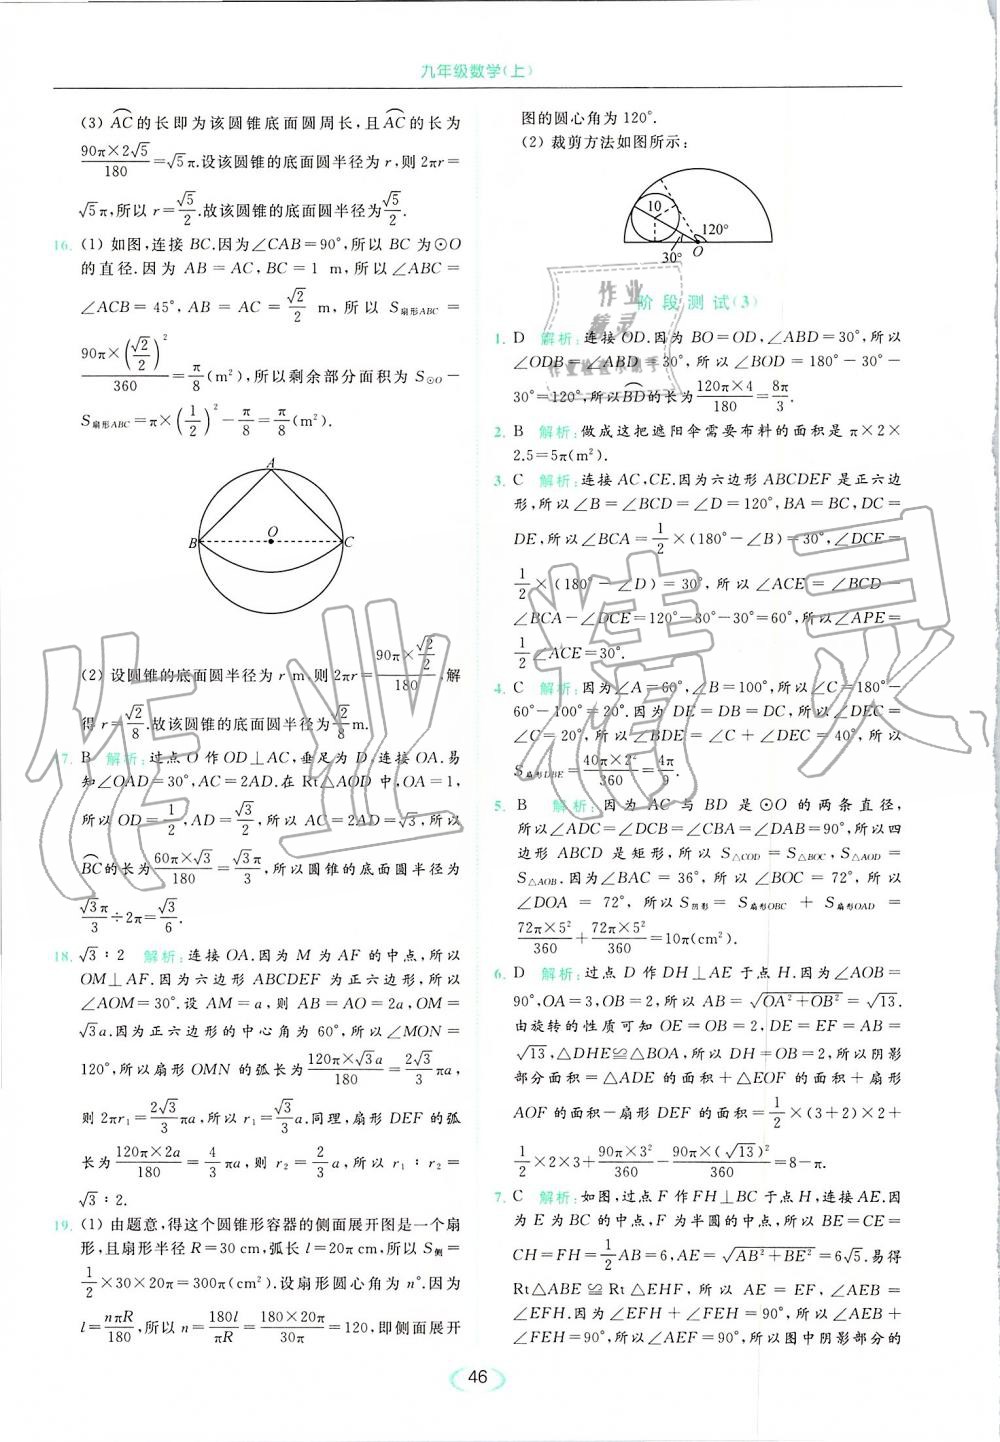 九年级数学(上)
(3) AC的长即为该圆锥底面圆周长,且AC的长为
90π×2√5/180=√5π.设该圆锥的底面圆半径为r,则2πr=
√5π,所以r=√5/2.故该圆锥的底面圆半径为√5/2.
16. (1) 如图,连接BC.因为∠CAB=90°,所以BC为⊙O
的直径.因为AB=AC,BC=1 m,所以∠ABC=
∠ACB=45°,AB=AC=√2/2 m,所以S扇形ABC=
90π×(√2/2)²/360=π/8(m²),所以剩余部分面积为S⊙O-
S扇形ABC=π×(1/2)²-π/8=π/8(m²).
A
B
O
C
(2) 设圆锥的底面圆半径为r m,则2πr=90π×√2/2/180,解
得r=√2/8.故该圆锥的底面圆半径为√2/8 m.
7. B 解析:过点O作OD⊥AC,垂足为D,连接OA.易
知∠OAD=30°,AC=2AD.在Rt△AOD中,OA=1,
所以OD=1/2,AD=√3/2,所以AC=2AD=√3,所以
BC的长为60π×√3/180=√3π/3,所以圆锥的底面圆半径为
√3π/3÷2π=√3/6.
18. √3∶2 解析:连接OA.因为M为AF的中点,所以
OM⊥AF.因为六边形ABCDEF为正六边形,所以
∠AOM=30°.设AM=a,则AB=AO=2a,OM=
√3a.因为正六边形的中心角为60°,所以∠MON=
120°,所以扇形OMN的弧长为120π×√3a/180=2√3/3πa,
则2πr₁=2√3/3πa,所以r₁=√3/3a.同理,扇形DEF的弧
长为120π×2a/180=4/3πa,则r₂=2/3a,所以r₁∶r₂=
√3∶2.
19. (1) 由题意,得这个圆锥形容器的侧面展开图是一个扇
形,且扇形半径R=30 cm,弧长l=20π cm,所以S侧=
1/2×30×20π=300π(cm²).设扇形圆心角为n°.因为
l=nπR/180,所以n=180l/πR=180×20π/30π=120,即侧面展开
图的圆心角为120°.
(2) 裁剪方法如图所示:
10
120°
30°
O
阶段测试(3)
1. D 解析:连接OD.因为BO=OD,∠ABD=30°,所以
∠ODB=∠ABD=30°,所以∠BOD=180°-30°-
30°=120°,所以BD的长为120π×4/180=8π/3.
2. B 解析:做成这把遮阳伞需要布料的面积是π×2×
2.5=5π(m²).
3. C 解析:连接AC,CE.因为六边形ABCDEF是正六边
形,所以∠B=∠BCD=∠D=120°,BA=BC,DC=
DE,所以∠BCA=1/2×(180°-∠B)=30°,∠DCE=
1/2×(180°-∠D)=30°,所以∠ACE=∠BCD-
∠BCA-∠DCE=120°-30°-30°=60°,所以∠APE=
1/2∠ACE=30°.
4. C 解析:因为∠A=60°,∠B=100°,所以∠C=180°-
60°-100°=20°.因为DE=DB=DC,所以∠DEC=
∠C=20°,所以∠BDE=∠C+∠DEC=40°,所以
S扇形DBE=40π×2²/360=4π/9.
5. B 解析:因为AC与BD是⊙O的两条直径,
所以∠ADC=∠DCB=∠CBA=∠DAB=90°,所以四
边形ABCD是矩形,所以S△COD=S△BOC,S△AOD=
S△AOB.因为∠BAC=36°,所以∠BOC=72°,所以
∠DOA=72°,所以S阴影=S扇形OBC+S扇形OAD=
72π×5²/360+72π×5²/360=10π(cm²).
6. D 解析:过点D作DH⊥AE于点H.因为∠AOB=
90°,OA=3,OB=2,所以AB=√(OA²+OB²)=√13.
由旋转的性质可知OE=OB=2,DE=EF=AB=
√13,△DHE≌△BOA,所以DH=OB=2,所以阴影
部分面积=△ADE的面积+△EOF的面积+扇形
AOF的面积-扇形DEF的面积=1/2×(3+2)×2+
1/2×2×3+90π×3²/360-90π×(√13)²/360=8-π.
7. C 解析:如图,过点F作FH⊥BC于点H,连接AE.因
为E为BC的中点,F为半圆的中点,所以BE=CE=
CH=FH=1/2AB=6,AE=√(AB²+BE²)=6√5.易得
Rt△ABE≌Rt△EHF,所以AE=EF,∠AEB=
∠EFH.因为∠EFH+∠FEH=90°,所以∠AEB+
∠FEH=90°,所以∠AEF=90°,所以图中阴影部分的
46
作业精灵